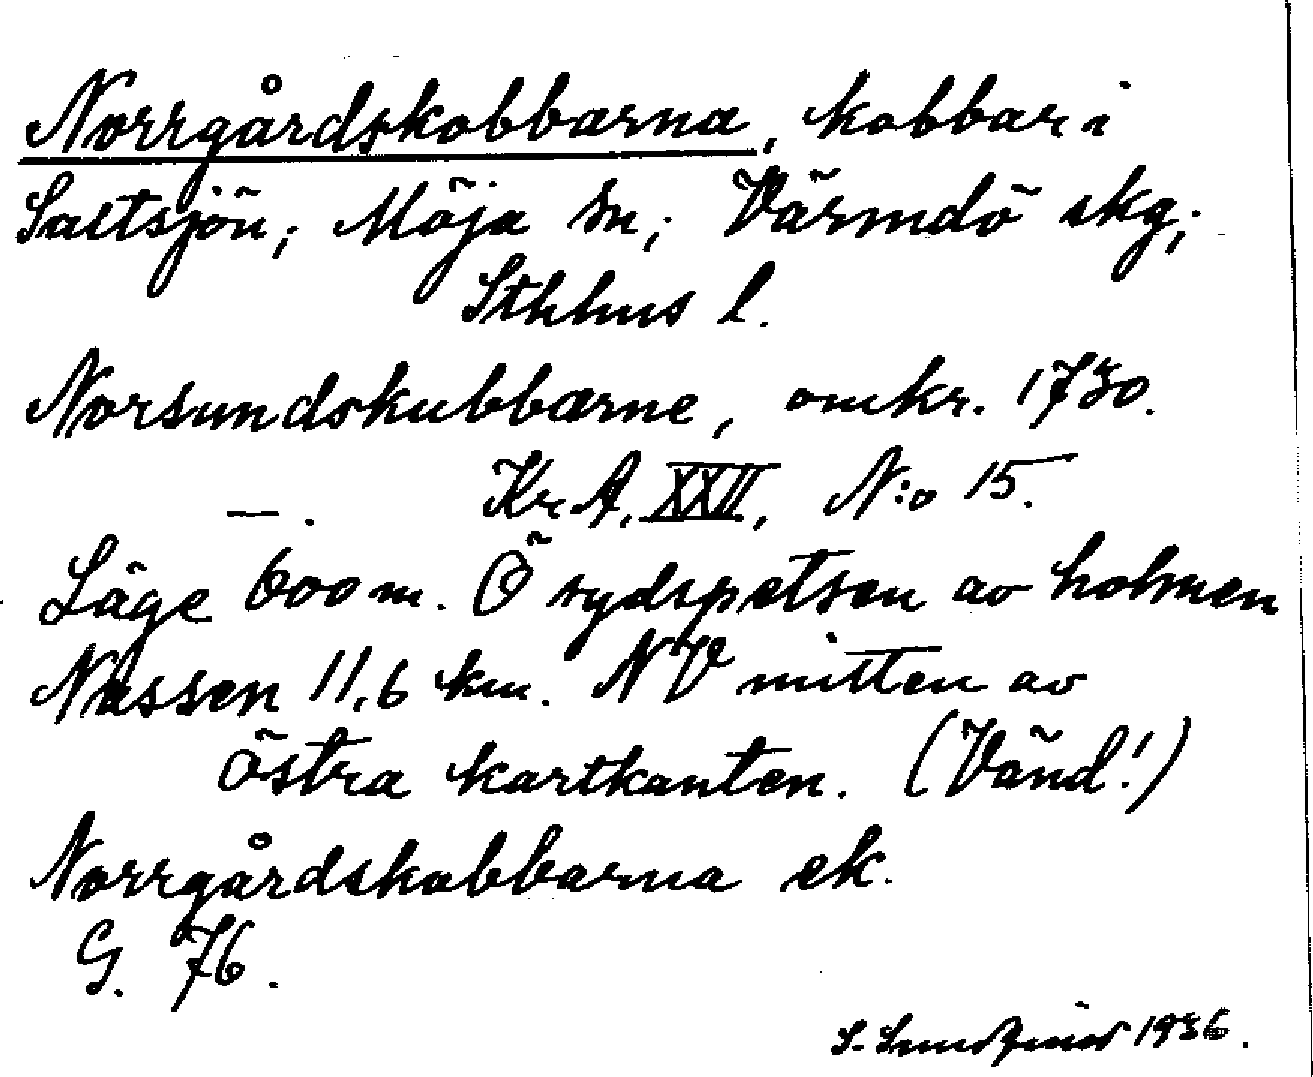 Norrgårdskobbarna, kobbar i
Saltsjön; Möja sn; Värmdö skg;
Sthlms l.
Norsundskubbarne, omkr. 1730.
—. Kr. A. XXII, N:o 15.
Läge 600 m. Ö sydspetsen av holmen
Nassen 11,6 km. NV mitten av
östra kartkanten. (Vänd!)
Norrgårdskobbarna ek.
G. 76.
S. 1936.